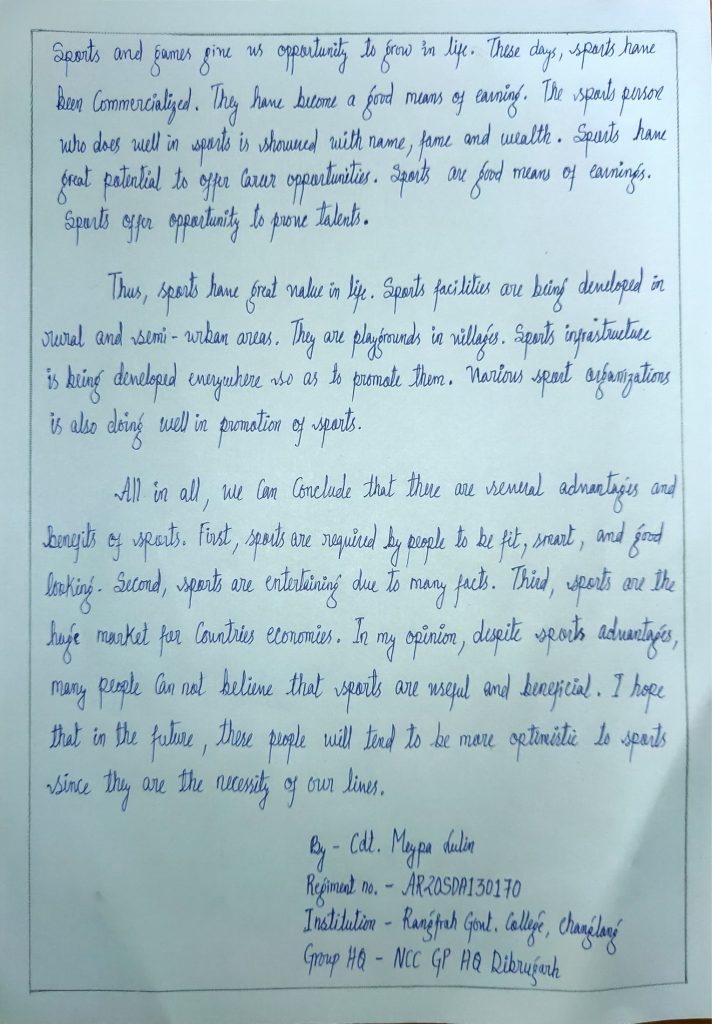 Sports and games give us opportunity to grow in life. These days, sports have
been Commercialized. They have become a good means of earning. The sports person
who does well in sports is showered with name, fame and wealth. Sports have
great potential to offer Career opportunities. Sports are good means of earnings.
Sports offer opportunity to prove talents.
Thus, sports have great value in life. Sports facilities are being developed in
rural and semi-urban areas. They are playgrounds in villages. Sports infrastructure
is being developed everywhere so as to promote them. Various sport organizations
is also doing well in promotion of sports.
All in all, we can conclude that there are several advantages and
benefits of sports. First, sports are required by people to be fit, smart, and good
looking. Second, sports are entertaining due to many facts. Third, sports are the
huge market for Countries economies. In my opinion, despite sports advantages,
many people can not believe that sports are useful and beneficial. I hope
that in the future, these people will tend to be more optimistic to sports
since they are the necessity of our lives.
By - Cdt. Meypa Lulin
Regiment no. - AR20SDA130170
Institution - Rangfrah Govt. College, Changlang
Group HQ - NCC GP HQ Dibrugarh